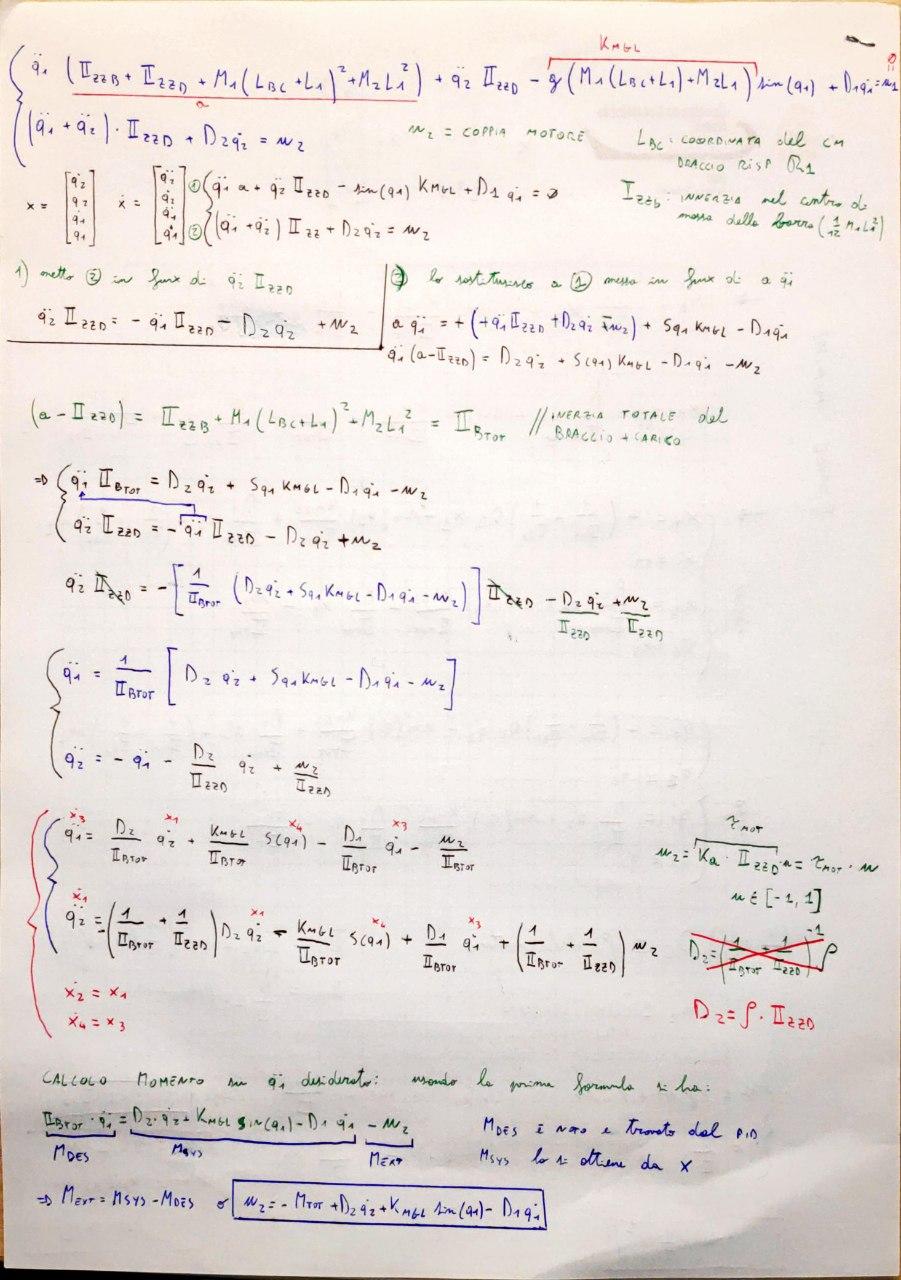 K_MGL
q̈1 (II_ZZB + II_ZZD + M1(L_BC+L1)² + M2L1²) + q̈2 II_ZZD - g(M1(L_BC+L1)+M2L1) sin(q1) + D1q̇1 = 0
a
(q̈1 + q̈2) · II_ZZD + D2q̇2 = u2
u2 = COPPIA MOTORE
L_BC: COORDINATA del CM
BRACCIO RISP R1
I_ZZb: INNERZIA nel centro di
massa della barra (1/12 M1L1²)
x = [q̇2 q2 q̇1 q1] ẋ = [q̈2 q̇2 q̈1 q̇1]
① q̈1 a + q̈2 II_ZZD - sin(q1) K_MGL + D1 q̇1 = 0
② (q̈1 + q̈2) II_ZZ + D2q̇2 = u2
1) metto ② in funx di q̈2 II_ZZD
q̈2 II_ZZD = - q̈1 II_ZZD - D2 q̇2 + u2
2) lo sostituisco a ① messa in funx di a q̈1
a q̈1 = + (+q̈1 II_ZZD + D2q̇2 - u2) + Sq1 K_MGL - D1q̇1
q̈1 (a - II_ZZD) = D2q̇2 + S(q1) K_MGL - D1q̇1 - u2
(a - II_ZZD) = II_ZZB + M1(L_BC+L1)² + M2L1² = II_BTOT // INERZIA TOTALE del
BRACCIO + CARICO
⇒ q̈1 II_BTOT = D2 q̇2 + Sq1 K_MGL - D1q̇1 - u2
q̈2 II_ZZD = - q̈1 II_ZZD - D2q̇2 + u2
q̈2 II_ZZD = - [1/II_BTOT (D2q̇2 + Sq1 K_MGL - D1q̇1 - u2)] II_ZZD - D2q̇2/II_ZZD + u2/II_ZZD
q̈1 = 1/II_BTOT [D2 q̇2 + Sq1 K_MGL - D1q̇1 - u2]
q̈2 = - q̈1 - D2/II_ZZD q̇2 + u2/II_ZZD
ẋ3 x1 x4 x3
q̈1 = D2/II_BTOT q̇2 + K_MGL/II_BTOT S(q1) - D1/II_BTOT q̇1 - u2/II_BTOT
τ_MOT
u2 = Ka · II_ZZD · u = τ_MOT · u
u ∈ [-1, 1]
ẋ1 x1 x4 x3
q̈2 = -(1/II_BTOT + 1/II_ZZD) D2 q̇2 - K_MGL/II_BTOT S(q1) + D1/II_BTOT q̇1 + (1/II_BTOT + 1/II_ZZD) u2
D2 = (1/II_BTOT + 1/II_ZZD)⁻¹ ρ
ẋ2 = x1
ẋ4 = x3
D2 = ρ · II_ZZD
CALCOLO MOMENTO su q̈1 desiderato: usando la prima formula si ha:
II_BTOT · q̈1 = D2·q̇2 + K_MGL sin(q1) - D1 q̇1 - u2
M_DES M_SYS M_EXT
M_DES È NOTO e trovato dal PID
M_SYS lo si ottiene da X
⇒ M_EXT = M_SYS - M_DES o u2 = - M_TOT + D2q̇2 + K_MGL sin(q1) - D1q̇1